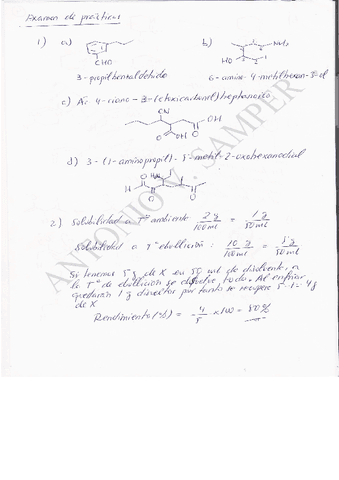 Examen de prácticas
1) a) b)
CHO HO NH₂
3-propilbenzaldehído 6-amino-4-metilhexan-3-ol
c) Ac. 4-ciano-3-(etoxicarbonil)heptanoico
CN
OH
O OH O
d) 3-(1-aminopropil)-5-metil-2-oxohexanodial
H O O
2) Solubilidad a Tª ambiente: 2 g / 100 ml = 1 g / 50 ml
Solubilidad a Tª ebullición: 10 g / 100 ml = 50 ml
Si tenemos 5 g de X en 50 ml de disolvente, a
la Tª de ebullición se disuelve todo. Al enfriar
quedarán 1 g disueltos por tanto se recupera 5-1=4g
de X
Rendimiento (%) = 4/5 x100 = 80%
ANTONIO V. SAMPER